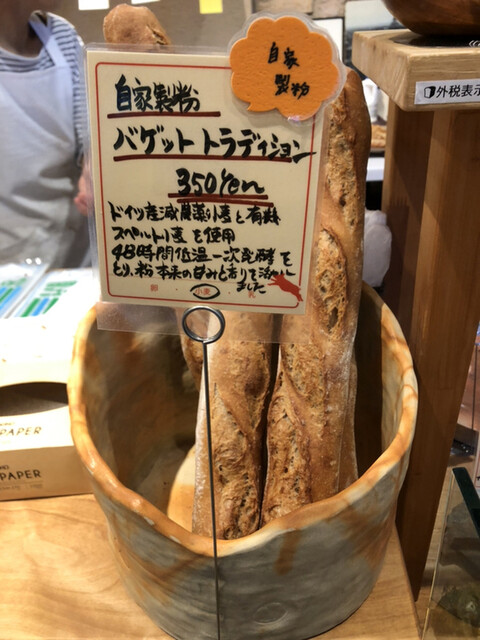 自家
製粉
自家製粉
バゲット トラディション
350yen
ドイツ産減農薬小麦と有機
スペルト小麦を使用
48時間低温一次発酵を
とり、粉本来の甘みと香りを
ました
小麦
外税表示
PAPER
PAPER